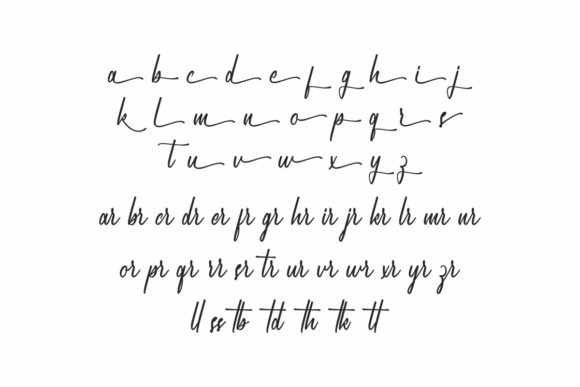 a b c d e f g h i j
k l m n o p q r s
t u v w x y z
ar br cr dr er fr gr hr ir jr kr lr mr nr
or pr qr rr sr tr ur vr wr xr yr zr
ll ss tb td th tk tt